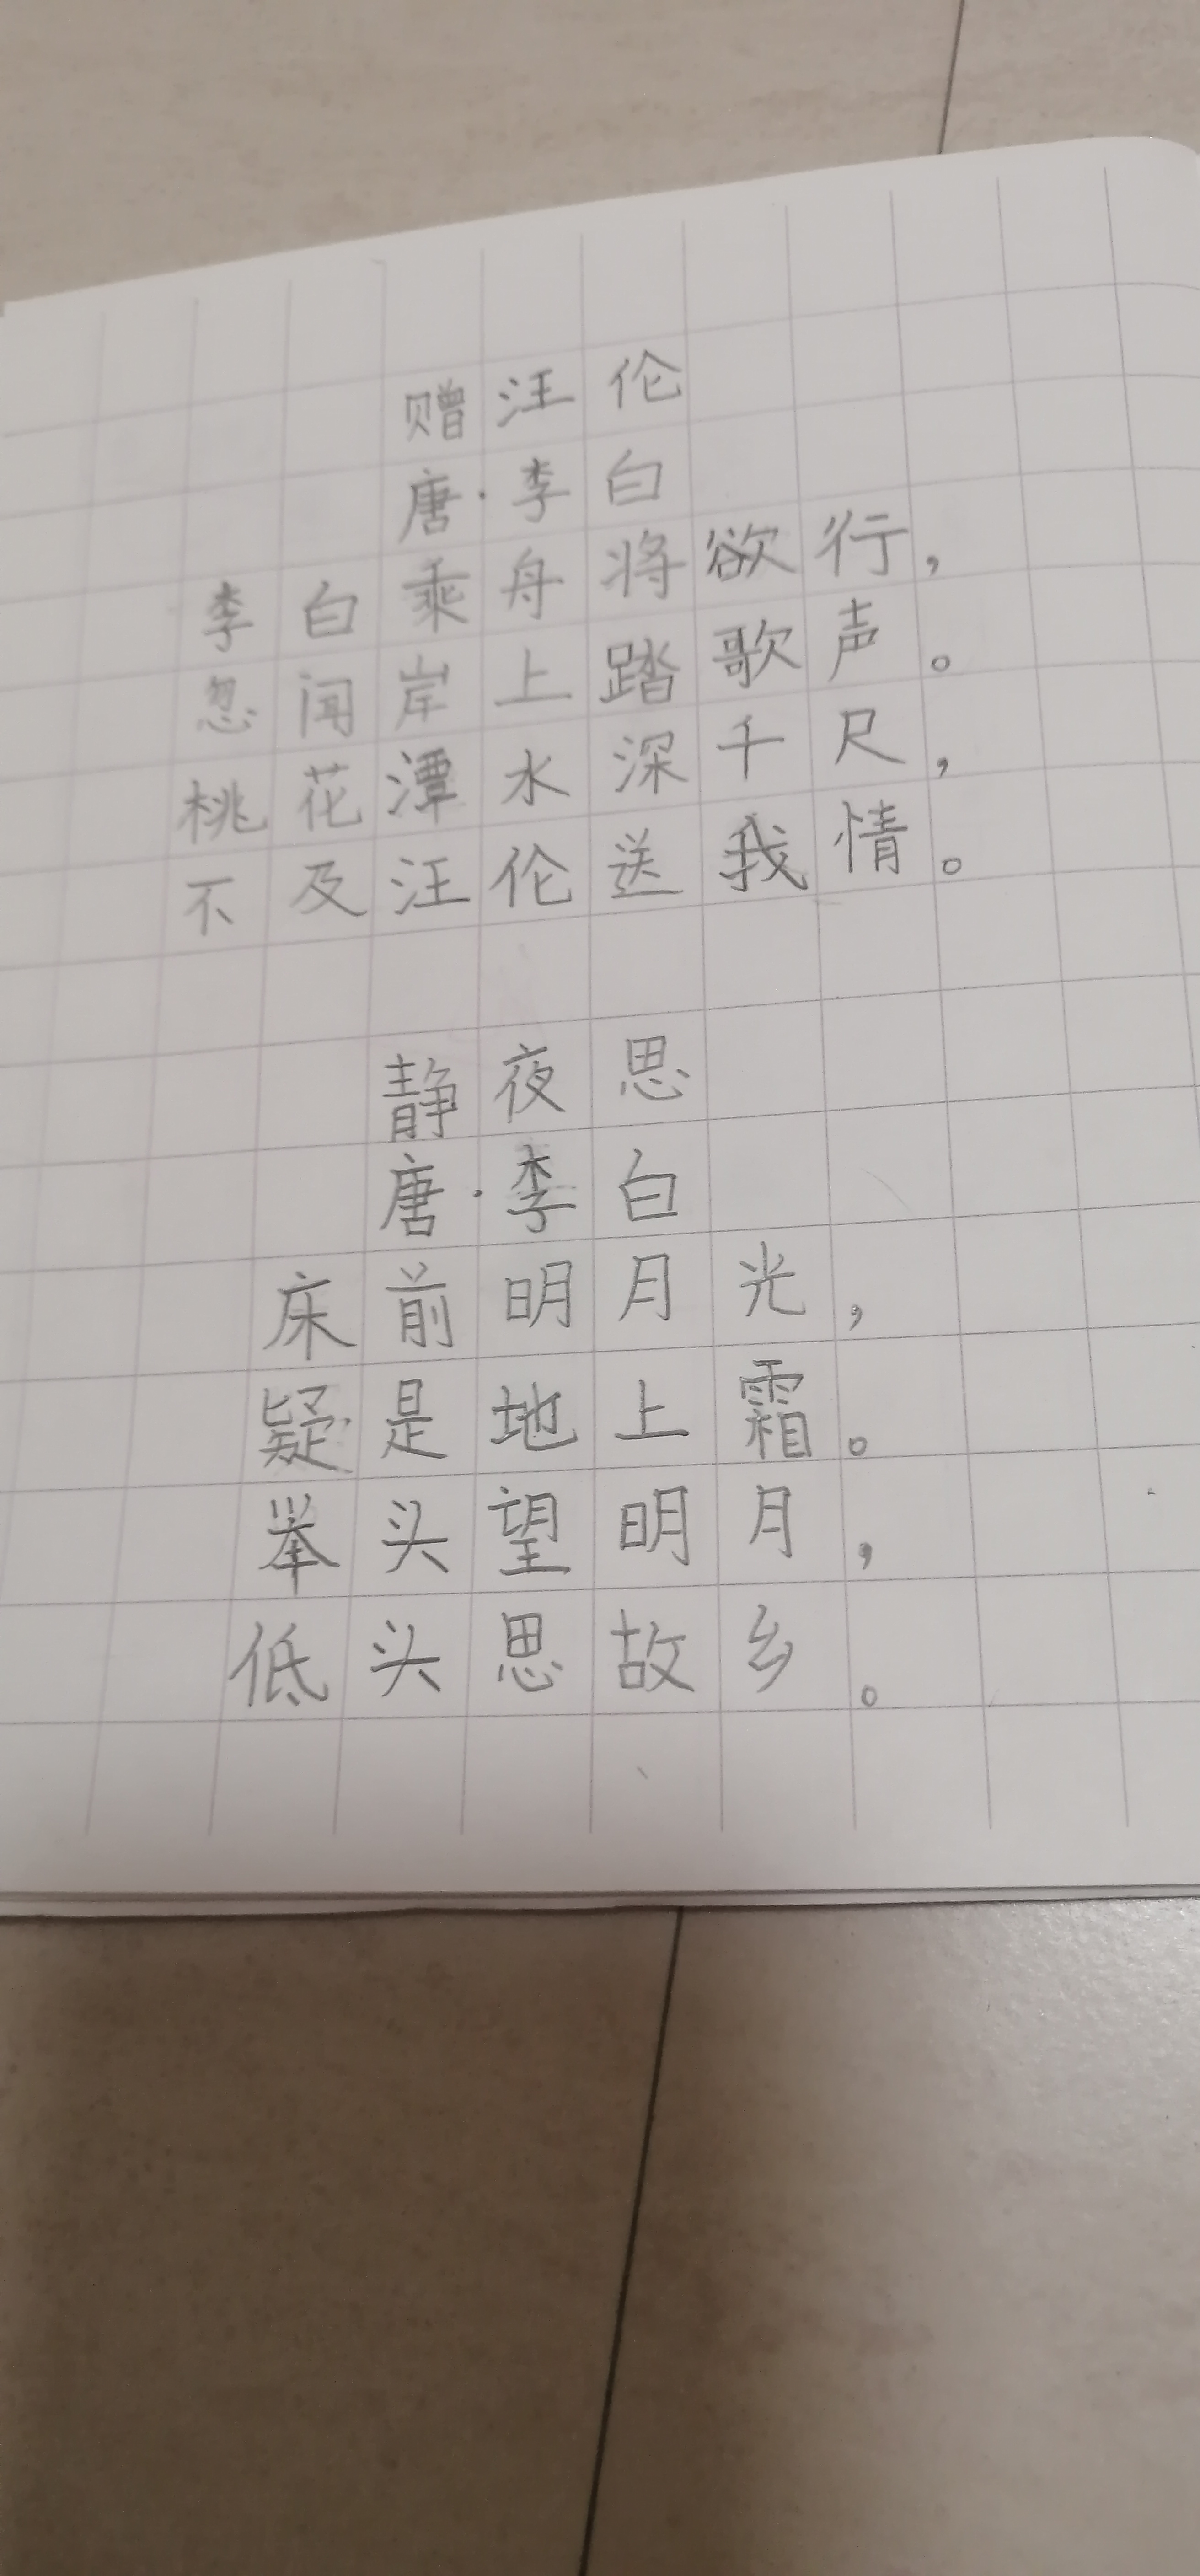 赠汪伦
唐·李白
李白乘舟将欲行，
忽闻岸上踏歌声。
桃花潭水深千尺，
不及汪伦送我情。
静夜思
唐·李白
床前明月光，
疑是地上霜。
举头望明月，
低头思故乡。